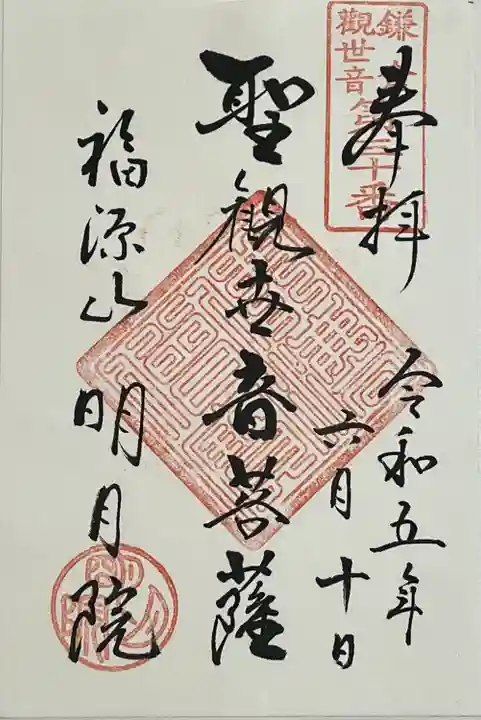 奉拝
令和五年
六月十日
聖觀世音菩薩
福源山明月院
鎌
觀世音第三十番